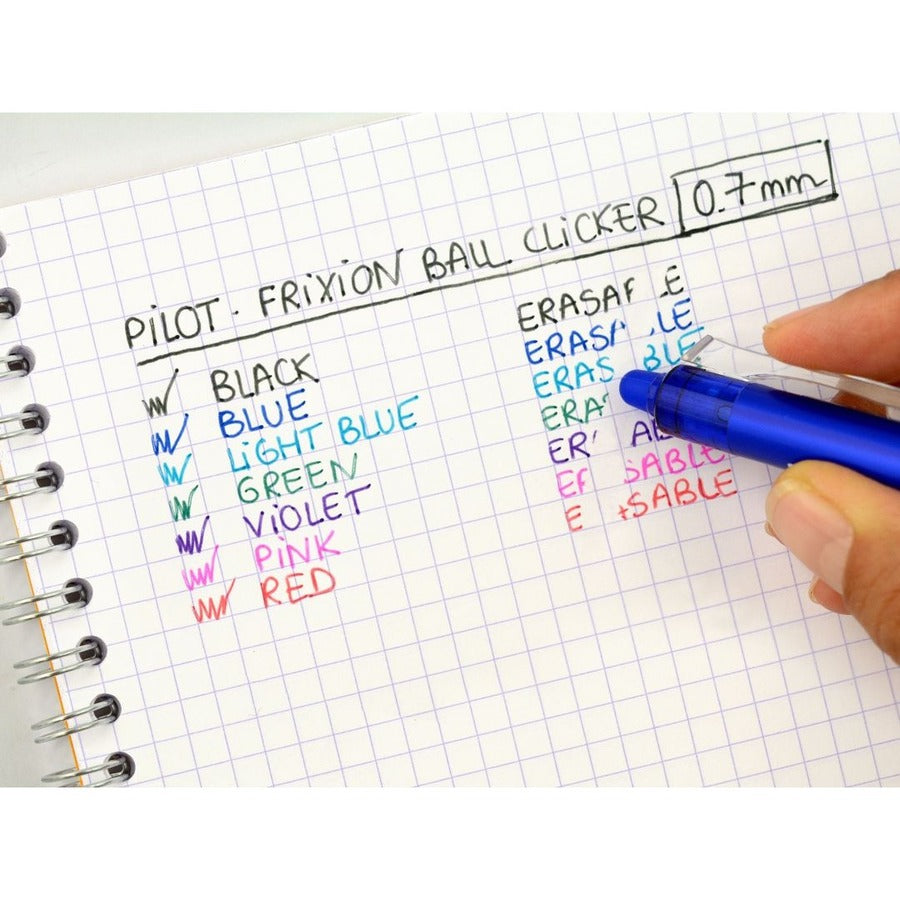 PiLOT - FRiXiON BALL CLiCKER 0.7mm
BLACK
BLUE
LiGHT BLUE
GREEN
ViOLET
PiNK
RED
ERASA LE
ERAS LE
ERAS BLE
ERA
ER A
E SABLE
E SABLE